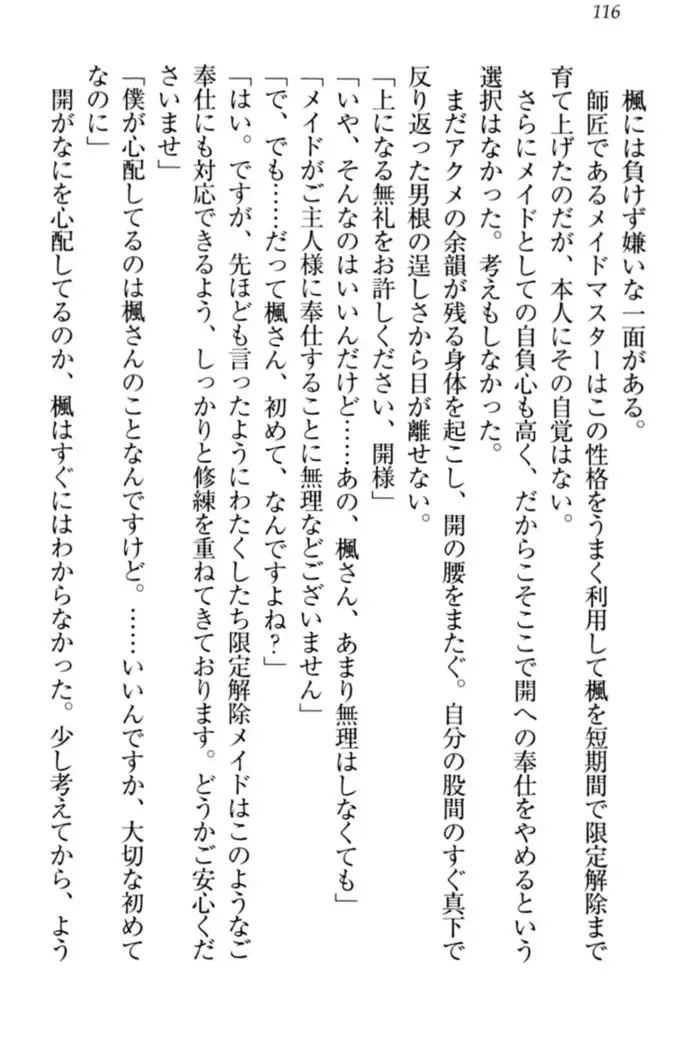 116
楓には負けず嫌いな一面がある。
師匠であるメイドマスターはこの性格をうまく利用して楓を短期間で限定解除まで
育て上げたのだが、本人にその自覚はない。
さらにメイドとしての自負心も高く、だからこそここで開への奉仕をやめるという
選択はなかった。考えもしなかった。
まだアクメの余韻が残る身体を起こし、開の腰をまたぐ。自分の股間のすぐ真下で
反り返った男根の逞しさから目が離せない。
「上になる無礼をお許しください、開様」
「いや、そんなのはいいんだけど……あの、楓さん、あまり無理はしなくても」
「メイドがご主人様に奉仕することに無理などございません」
「で、でも……だって楓さん、初めて、なんですよね?」
「はい。ですが、先ほども言ったようにわたくしたち限定解除メイドはこのようなご
奉仕にも対応できるよう、しっかりと修練を重ねてきております。どうかご安心くだ
さいませ」
「僕が心配してるのは楓さんのことなんですけど。……いいんですか、大切な初めて
なのに」
開がなにを心配してるのか、楓はすぐにはわからなかった。少し考えてから、よう